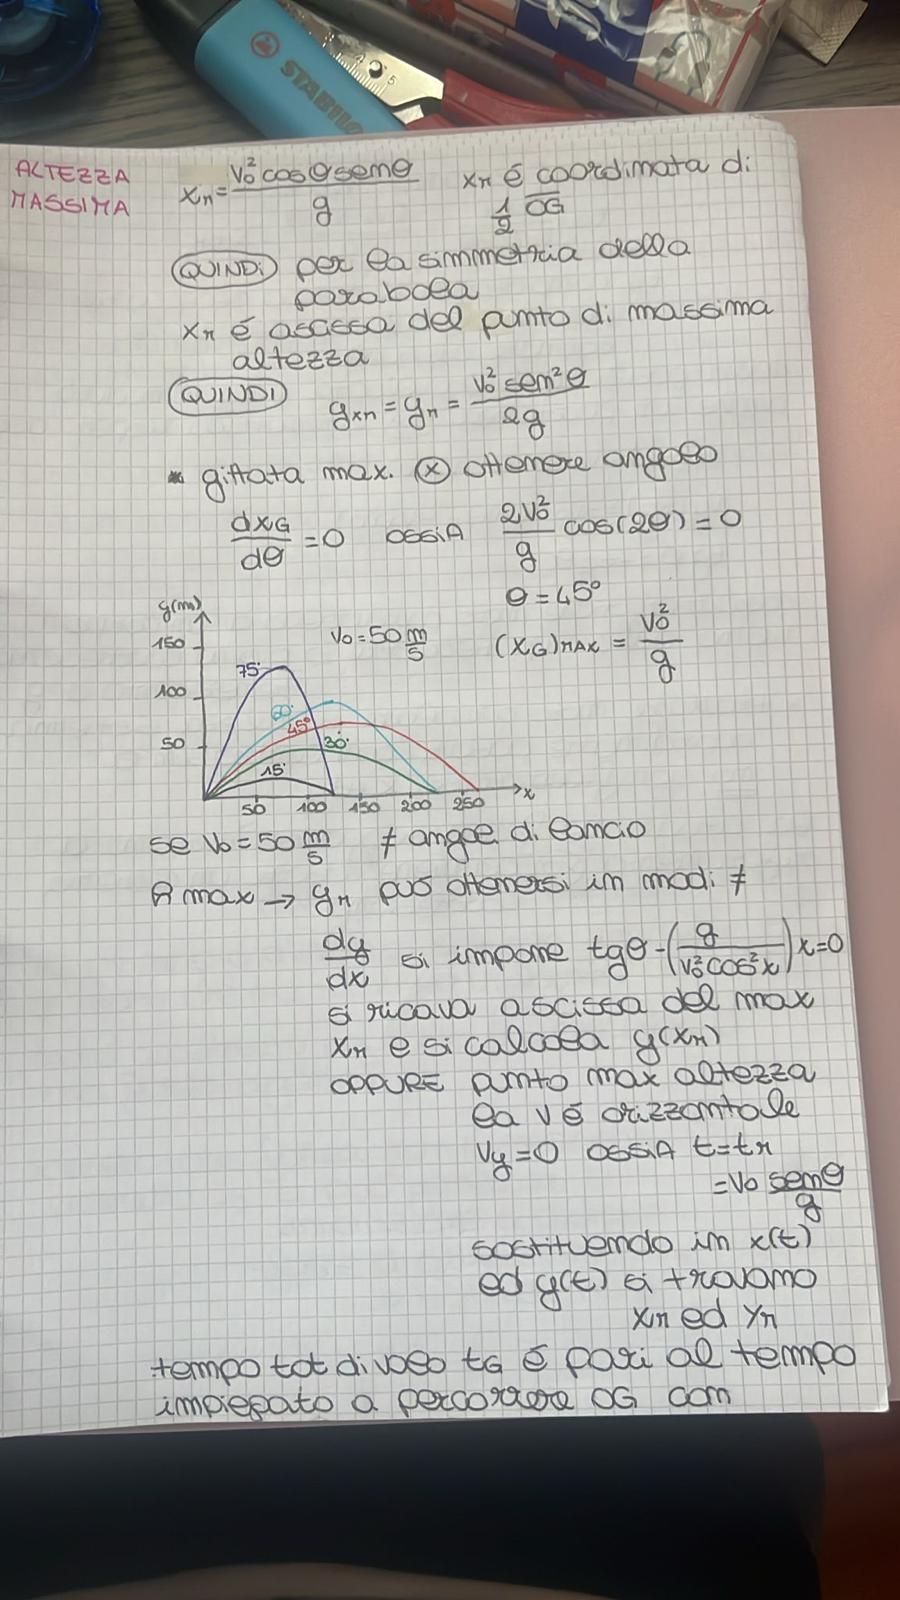 STABILO
ALTEZZA
MASSIMA
xₘ = v₀² cosθ senθ / g
xₘ é coordinata di
1/2 OG
QUINDI per la simmetria della
parabola
xₘ é ascissa del punto di massima
altezza
QUINDI
yₓₘ = yₘ = v₀² sen²θ / 2g
* gittata max. ⓧ ottenere angolo
dxG/dθ = 0 OSSIA 2v₀²/g cos(2θ) = 0
θ = 45°
y(m)
150
100
50
v₀ = 50 m/s
(xG)MAX = v₀²/g
75°
60°
45°
30°
15°
50 100 150 200 250 x
se v₀ = 50 m/s ≠ angol. di lancio
A max → yₘ può ottenersi in modi ≠
dy/dx si impone tgθ - (g / v₀² cos²x) x = 0
si ricava ascissa del max
xₘ e si calcola y(xₘ)
OPPURE punto max altezza
la v é orizzontale
vy = 0 OSSIA t = tₘ
= v₀ senθ / g
sostituendo in x(t)
ed y(t) si trovano
xₘ ed yₘ
tempo tot di volo tG é pari al tempo
impiegato a percorrere OG con